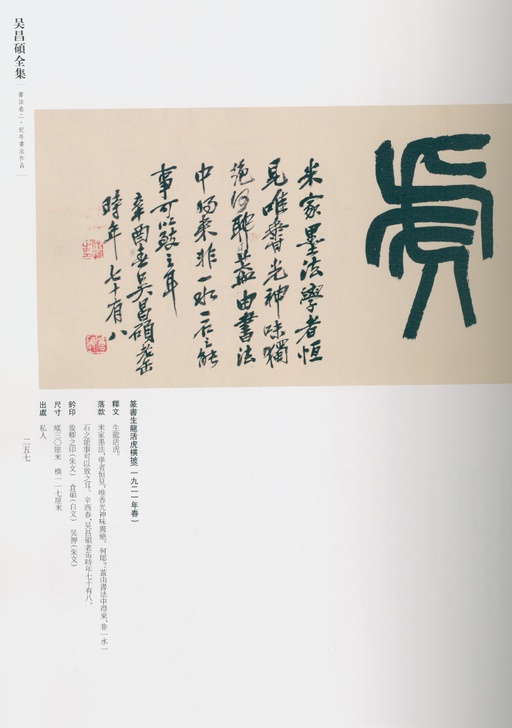 吴昌碩全集
書法卷二·紀年書法作品
虎
米家墨法學者恒
見唯香光神味獨
絶何耶蓋由書法
中得來非一水一石之能
事可以致之耳
辛酉春吴昌碩老缶
時年七十有八
篆書生龍活虎橫披(一九二一年春)
釋文 生龍活虎。
落款 米家墨法,學者恒見,唯香光神味獨絶。何耶?蓋由書法中得來,非一水一
石之能事可以致之耳。辛酉春,吴昌碩老缶時年七十有八。
鈐印 俊卿之印(朱文) 倉碩(白文) 吴押(朱文)
尺寸 縱三〇厘米 橫一一七厘米
出處 私人
二五七